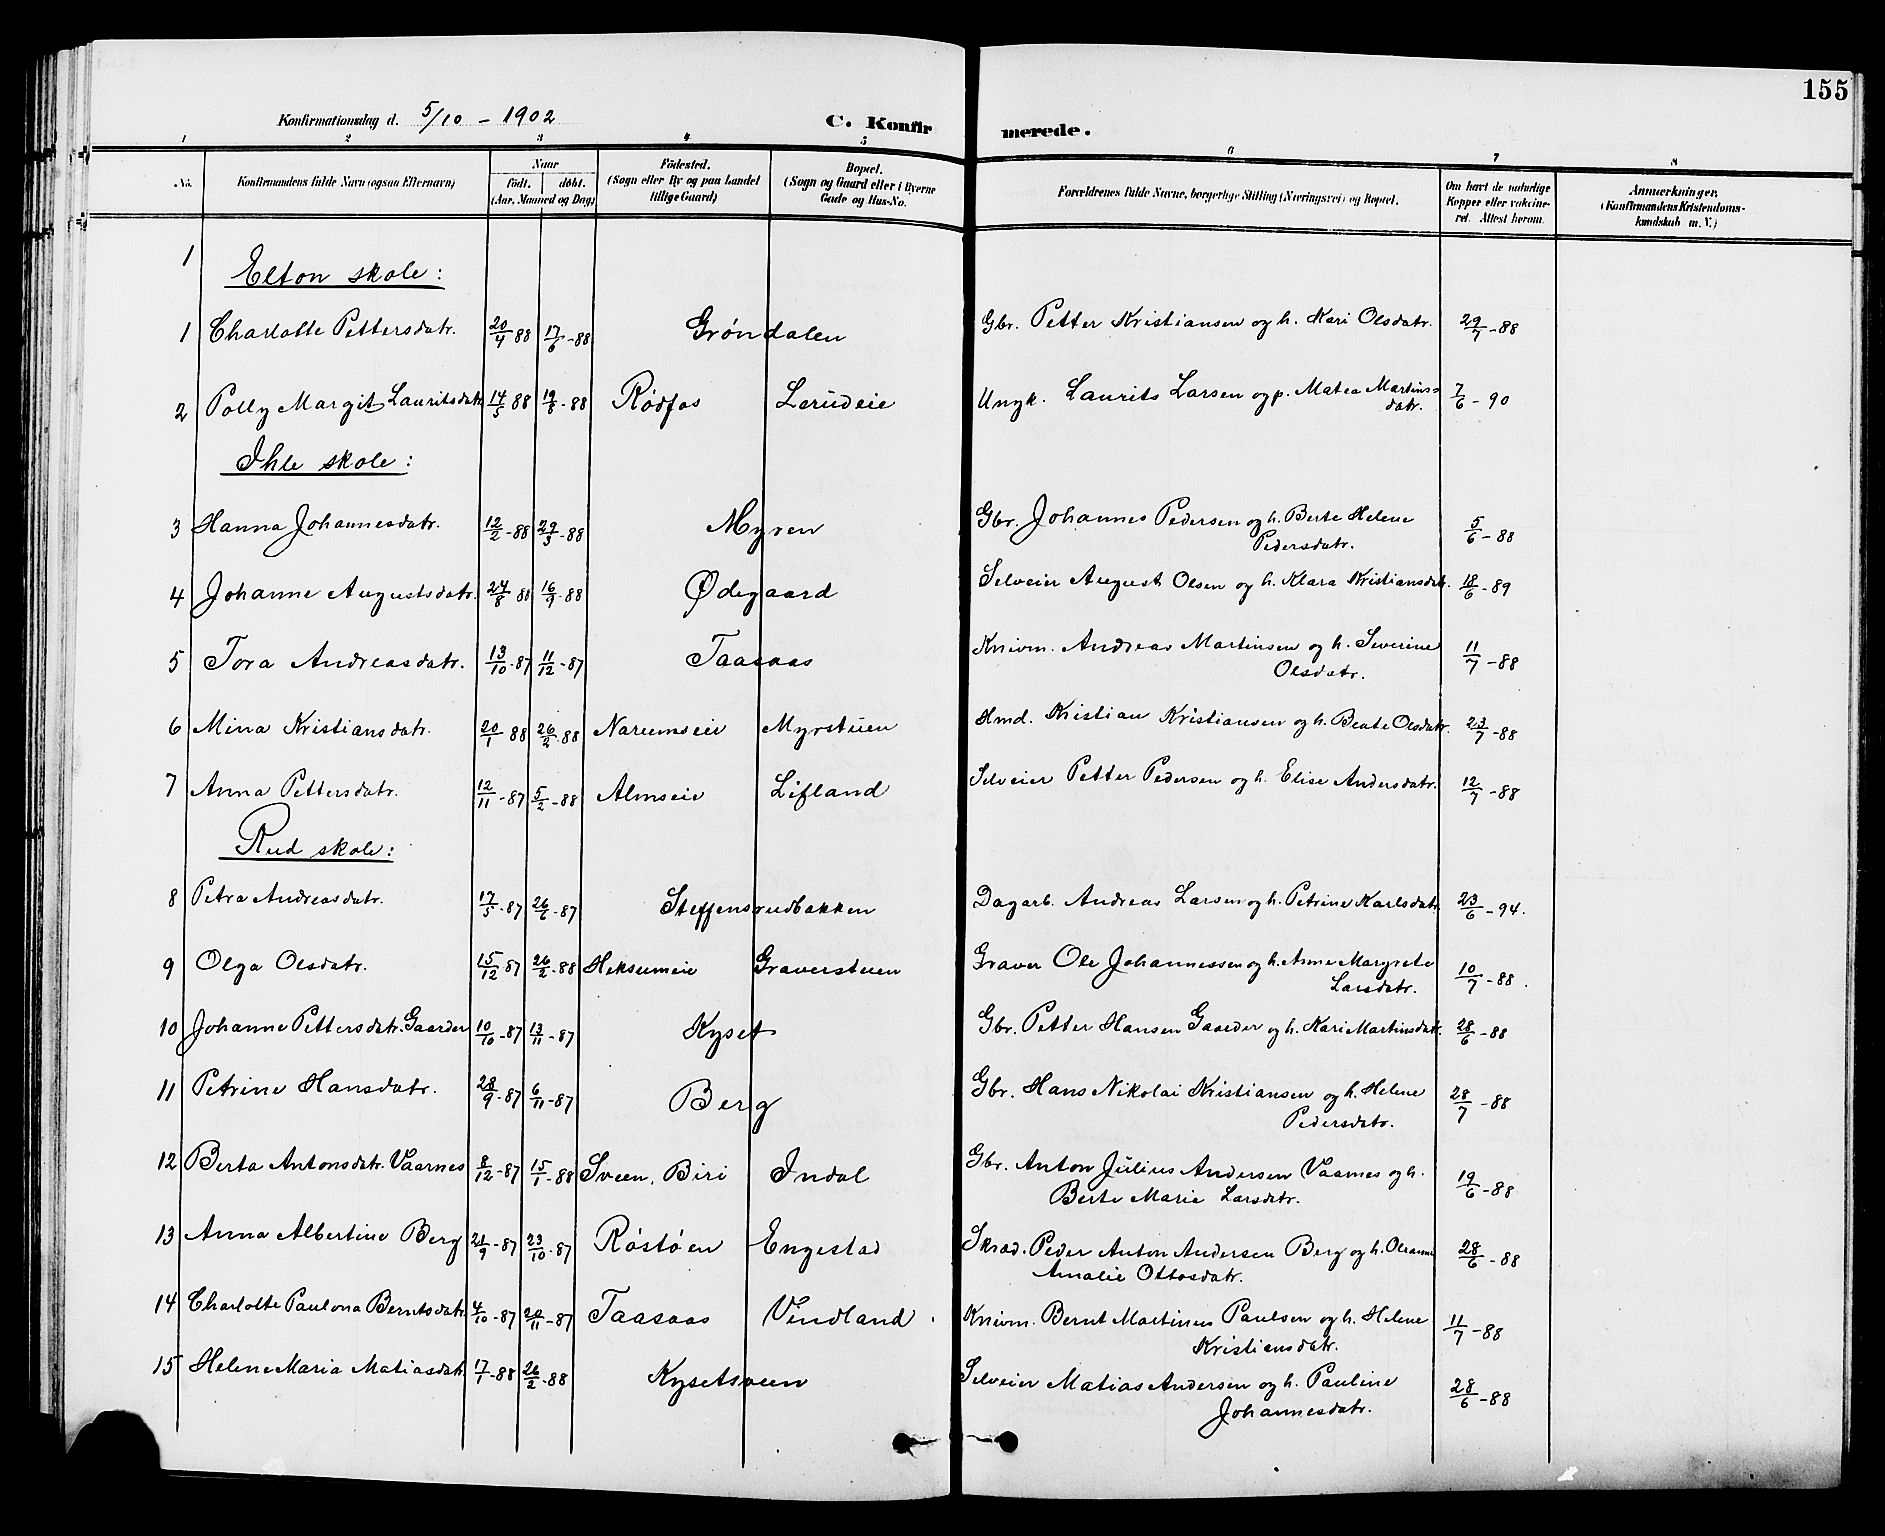 155
Konfirmationsdag d. 5/10 - 1902 C. Konfirmerede.
1 2 3 4 5 6 7 8
No. Konfirmandens fulde Navn (ogsaa Efternavn) Naar født. døbt. (Aar, Maaned og Dag) Födested. (Sogn eller By og paa Landet tillige Gaard) Bopæl. (Sogn og Gaard eller i Byerne Gade og Hus-No. Forældrenes fulde Navne, borgerlige Stilling (Næringsvei) og Bopæl. Om havt de naturlige Kopper eller vaccineret. Attest herom. Anmærkninger. (Konfirmandens Kristendomskundskab m. V.)
1
Elton skole:
1 Charlotte Pettersdatr. 20/4 88 17/6-88 Grøndalen Gbr. Petter Kristiansen og h. Kari Olsdatr. 29/7-88
2 Polly Margit Lauritsdatr. 14/5 88 19/8-88 Rødfos Lerudeie Ungk. Laurits Larsen og p. Matea Martins-
datr. 7/6-90
Ihle skole:
3 Hanna Johannesdatr. 12/2-88 29/3-88 Myren Gbr. Johannes Pedersen og h. Berte Helene
Pedersdatr. 5/6-88
4 Johanne Augustsdatr. 24/8 88 16/9-88 Ødegaard Selveier August Olsen og h. Klara Kristiansdatr. 18/6-89
5 Tora Andreasdatr. 13/10-87 11/12-87 Taasaas Knivm. Andreas Martinsen og h. Severine
Olsdatr. 11/7-88
6 Mina Kristiansdatr. 20/1 88 26/2-88 Narumseie Myrstuen Hmd. Kristian Kristiansen og h. Beate Olsdatr. 23/7-88
7 Anna Pettersdatr. 12/11-87 5/2-88 Almseie Lifland Selveier Petter Pedersen og h. Elise Andersdatr. 12/7-88
Rud skole:
8 Petra Andreasdatr. 17/5-87 26/6-87 Steffensrudbakken Dagarb. Andreas Larsen og h. Petrine Karlsdatr. 23/6-94.
9 Olga Olsdatr. 15/12 87 26/2-88 Heksumeie Graverstuen Graver Ole Johannessen og h. Anne Margrete
Larsdatr. 10/7-88.
10 Johanne Pettersdatr. Gaarder 10/10-87 13/11-87 Kyset Gbr. Petter Hansen Gaarder og h. Kari Martinsdatr. 28/6-88
11 Petrine Hansdatr. 28/9-87 6/11-87 Berg Gbr. Hans Nikolai Kristiansen og h. Helene
Pedersdatr. 28/7-88
12 Berta Antonsdatr. Vaarnes 8/12-87 15/1-88 Sveen, Biri Indal Gbr. Anton Julius Andersen Vaarnes og h.
Berte Marie Larsdatr. 19/6-88
13 Anna Albertine Berg 21/9-87 23/10-87 Røstøen Engestad Skræd. Peder Anton Andersen Berg og h. Oleanne
Amalie Ottosdatr. 28/6-88
14 Charlotte Paulona Berntsdatr. 4/10-87 20/11-87 Taasaas Vindland. Knivm. Bernt Martinus Paulsen og h. Helene
Kristiansdatr. 11/7-88
15 Helene Maria Matiasdatr. 17/1-88 26/2-88 Kysetsveen Selveier Matias Andersen og h. Pauline
Johannesdatr. 28/6-88